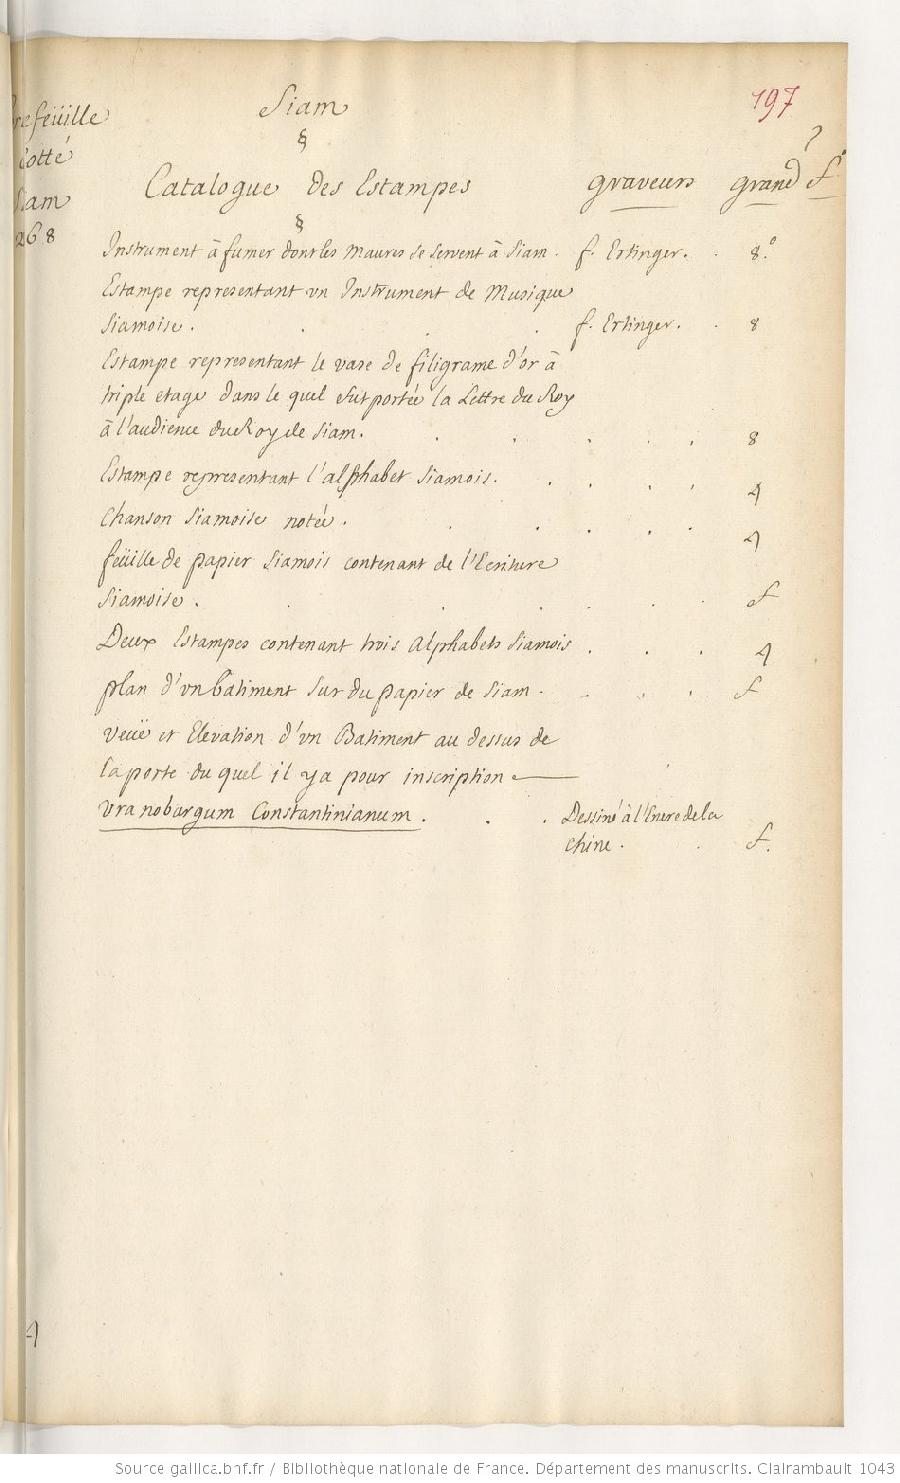 Siam
197
feüille
Cotté
Siam
268
§
Catalogue des Estampes graveurs grand f.°
§
Instrument à fumer dont les Maures se servent à Siam. f. Ertinger. 8.°
Estampe representant vn Instrument de Musique
Siamoise. f. Ertinger. 8
Estampe representant le vase de filigrame d'or à
triple etage dans le quel fut portée la Lettre du Roy
à l'audience du Roy de Siam. 8
Estampe representant l'alphabet Siamois. 4
Chanson Siamoise notée. 4
feüille de papier Siamois contenant de l'Ecriture
Siamoise. f
Deux Estampes contenant trois Alphabets Siamois. 4
plan d'vn batiment sur du papier de Siam. f
Veuë et Elevation d'vn Batiment au dessus de
la porte du quel il y a pour inscription
Vranobargum Constantinianum. Dessiné à l'Encre de la
Chine. f.
4
Source gallica.bnf.fr / Bibliothèque nationale de France. Département des manuscrits. Clairambault 1043